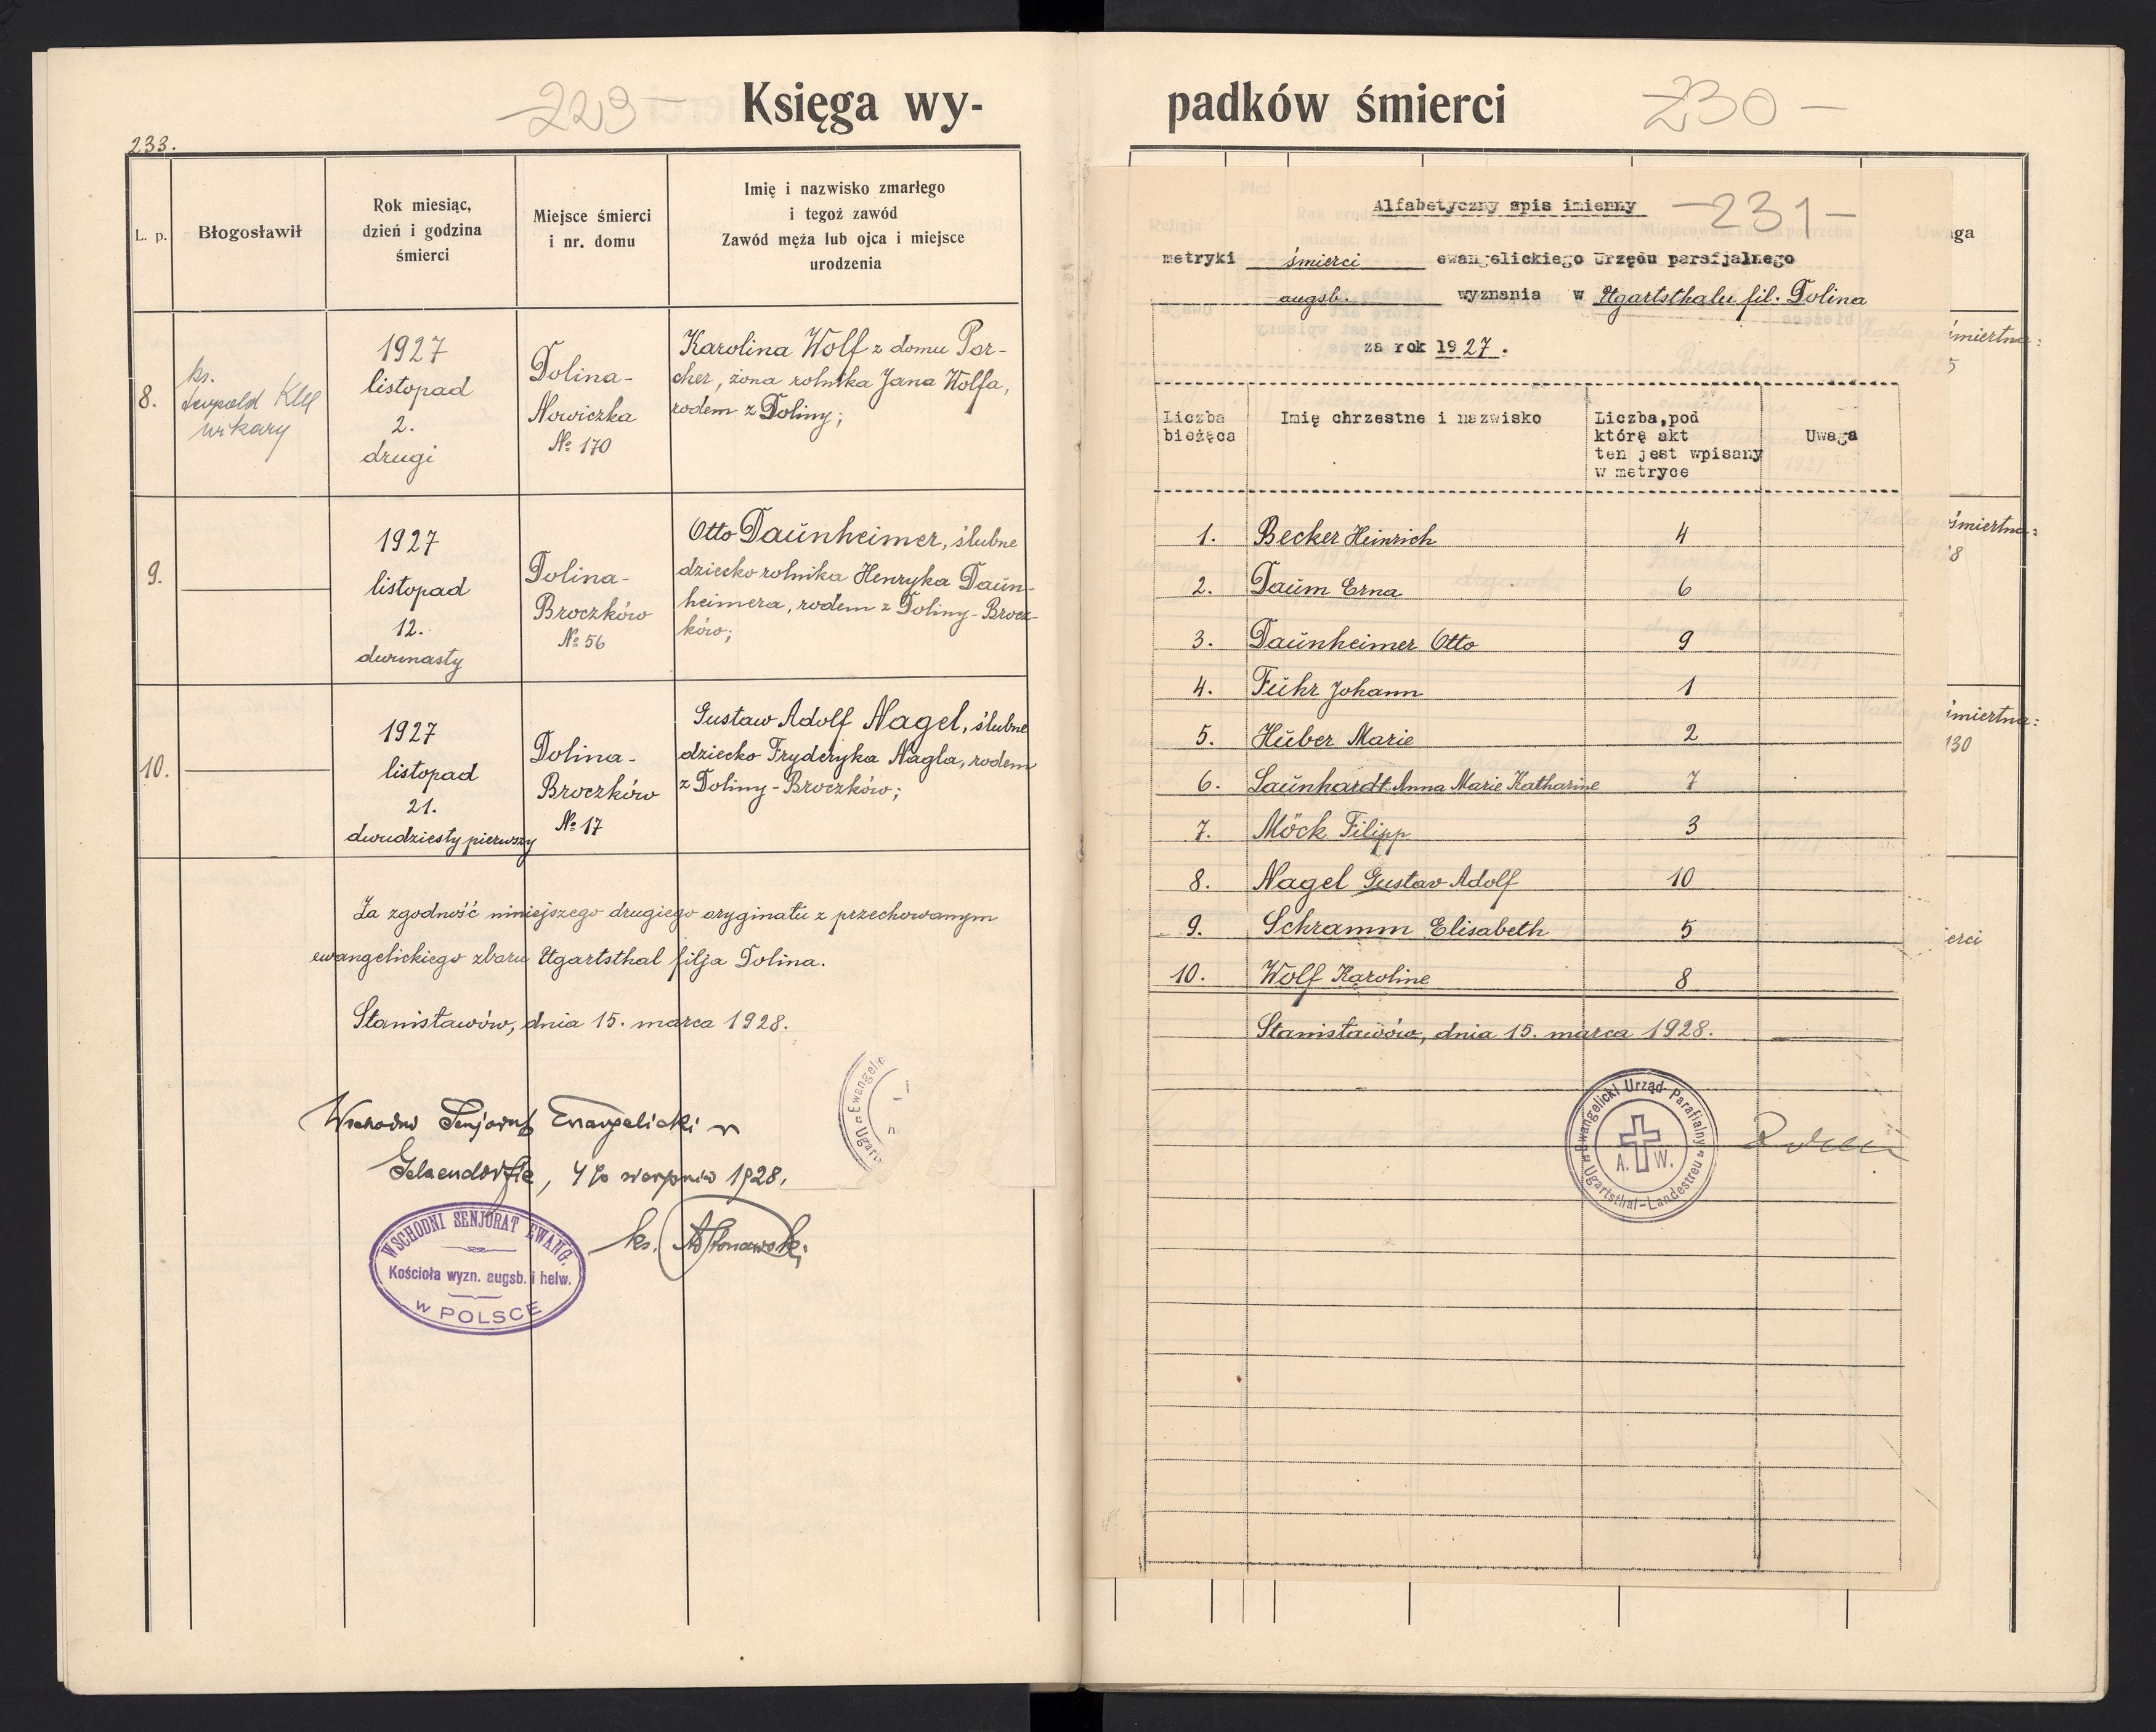 -229-
Księga wy-
233.
L. p.
Błogosławił
Rok miesiąc,
dzień i godzina
śmierci
Miejsce śmierci
i nr. domu
Imię i nazwisko zmarłego
i tegoż zawód
Zawód męża lub ojca i miejsce
urodzenia
8.
ks.
Leopold Klee
wikary
1927
listopad
2.
drugi
Dolina-
Nowiczka
№ 170
Karolina Wolf z domu Por-
cher, żona rolnika Jana Wolfa,
rodem z Doliny;
9.
1927
listopad
12.
dwunasty
Dolina-
Broczków
№ 56
Otto Daŭnheimer, ślubne
dziecko rolnika Henryka Daŭn-
heimera, rodem z Doliny-Brocz-
ków;
10.
1927
listopad
21.
dwudziesty pierwszy
Dolina-
Broczków
№ 17
Gustaw Adolf Nagel, ślubne
dziecko Fryderyka Nagla, rodem
z Doliny-Broczków;
Za zgodność niniejszego drugiego oryginału z przechowanym
ewangelickiego zboru Ugartsthal filja Dolina.
Stanisławów, dnia 15. marca 1928.
Ewangelic
Ugarts
Wschodni Senjorat Ewangelicki w
Gelsendorfie, 4go sierpnia 1928.
ks.
WSCHODNI SENJORAT EWANG.
Kościoła wyzn. augsb. i helw.
w POLSCE
padków śmierci
-230-
Alfabetyczny spis imienny
-231-
metryki śmierci ewangelickiego Urzędu parafjalnego
augsb. wyznania w Ugartsthalu fil. Dolina
za rok 1927.
Liczba
bieżąca
Imię chrzestne i nazwisko
Liczba,pod
którą akt
ten jest wpisany
w metryce
Uwaga
1. Becker Heinrich 4
2. Daŭm Erna 6
3. Daŭnheimer Otto 9
4. Fŭhr Johann 1
5. Hŭber Marie 2
6. Laŭnhardt Anna Marie Katharine 7
7. Möck Filipp 3
8. Nagel Gustav Adolf 10
9. Schramm Elisabeth 5
10. Wolf Karoline 8
Stanisławów, dnia 15. marca 1928.
Ewangelicki Urząd Parafialny
A. W.
w Ugartsthal-Landestreu
ga
śmiertna:
5
śmiertna:
8
śmiertna:
130
erci